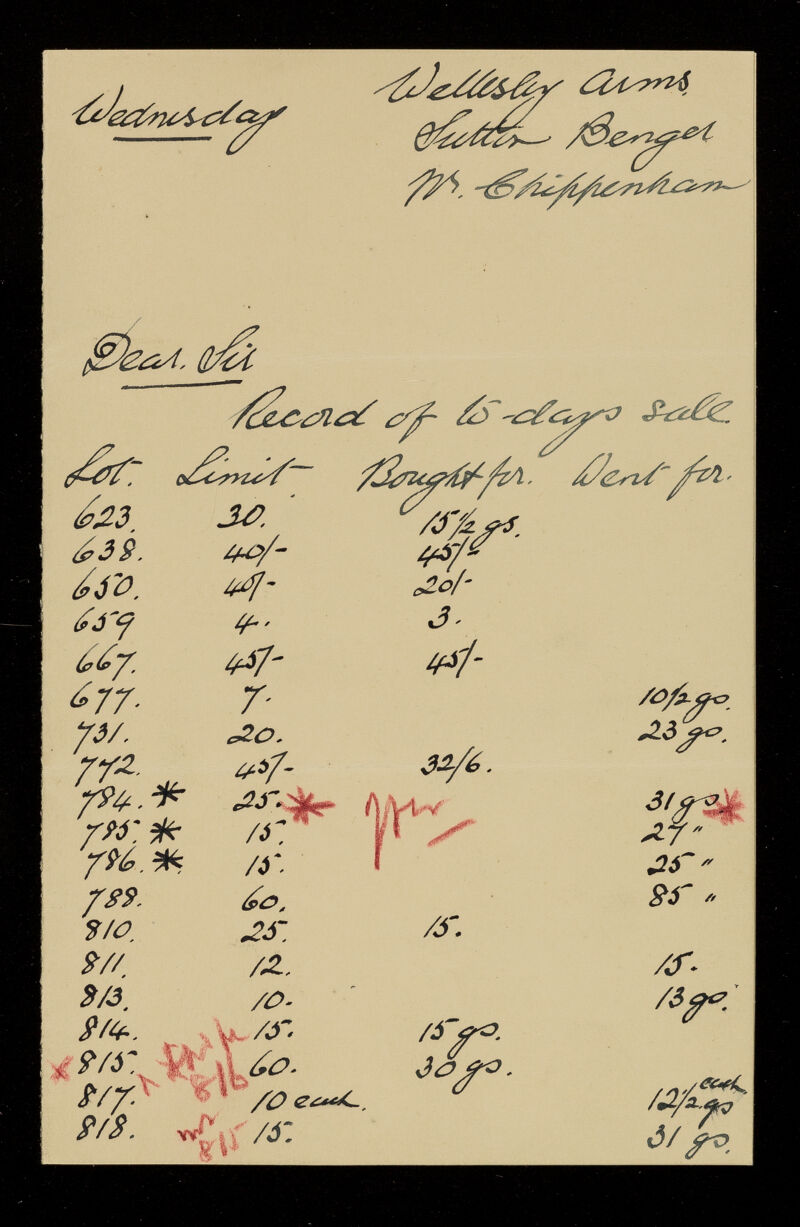 Wednesday
Wellesley Arms
Sutton Benger
Nr. Chippenham
Dear. Sir
Record of to-days sale.
Lot. Limit Bought for. Went for.
623. 30. 15 1/2 gs.
638. 40/- 45/-
650. 40/- 20/-
659 4. 3.
667. 45/- 45/-
677. 7. 10 1/2 gs.
731. 20. 23 gs.
772. 45/- 32/6.
784. * 25. * 31 gs *
785. * 15. 27 "
786. * 15. 25 "
788. 60. 85 "
810. 25. 15.
811. 12. 15.
813. 10. 13 gs.
814. 15. 15 gs.
x 815. 816 60. 30 gs.
817. 10 each. 12 1/2 gs each
818. 815 15. 31 gs.